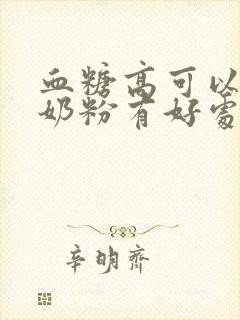 血糖高可以
奶粉有好處
辛明齊